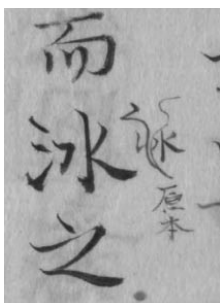 而泳之
原本